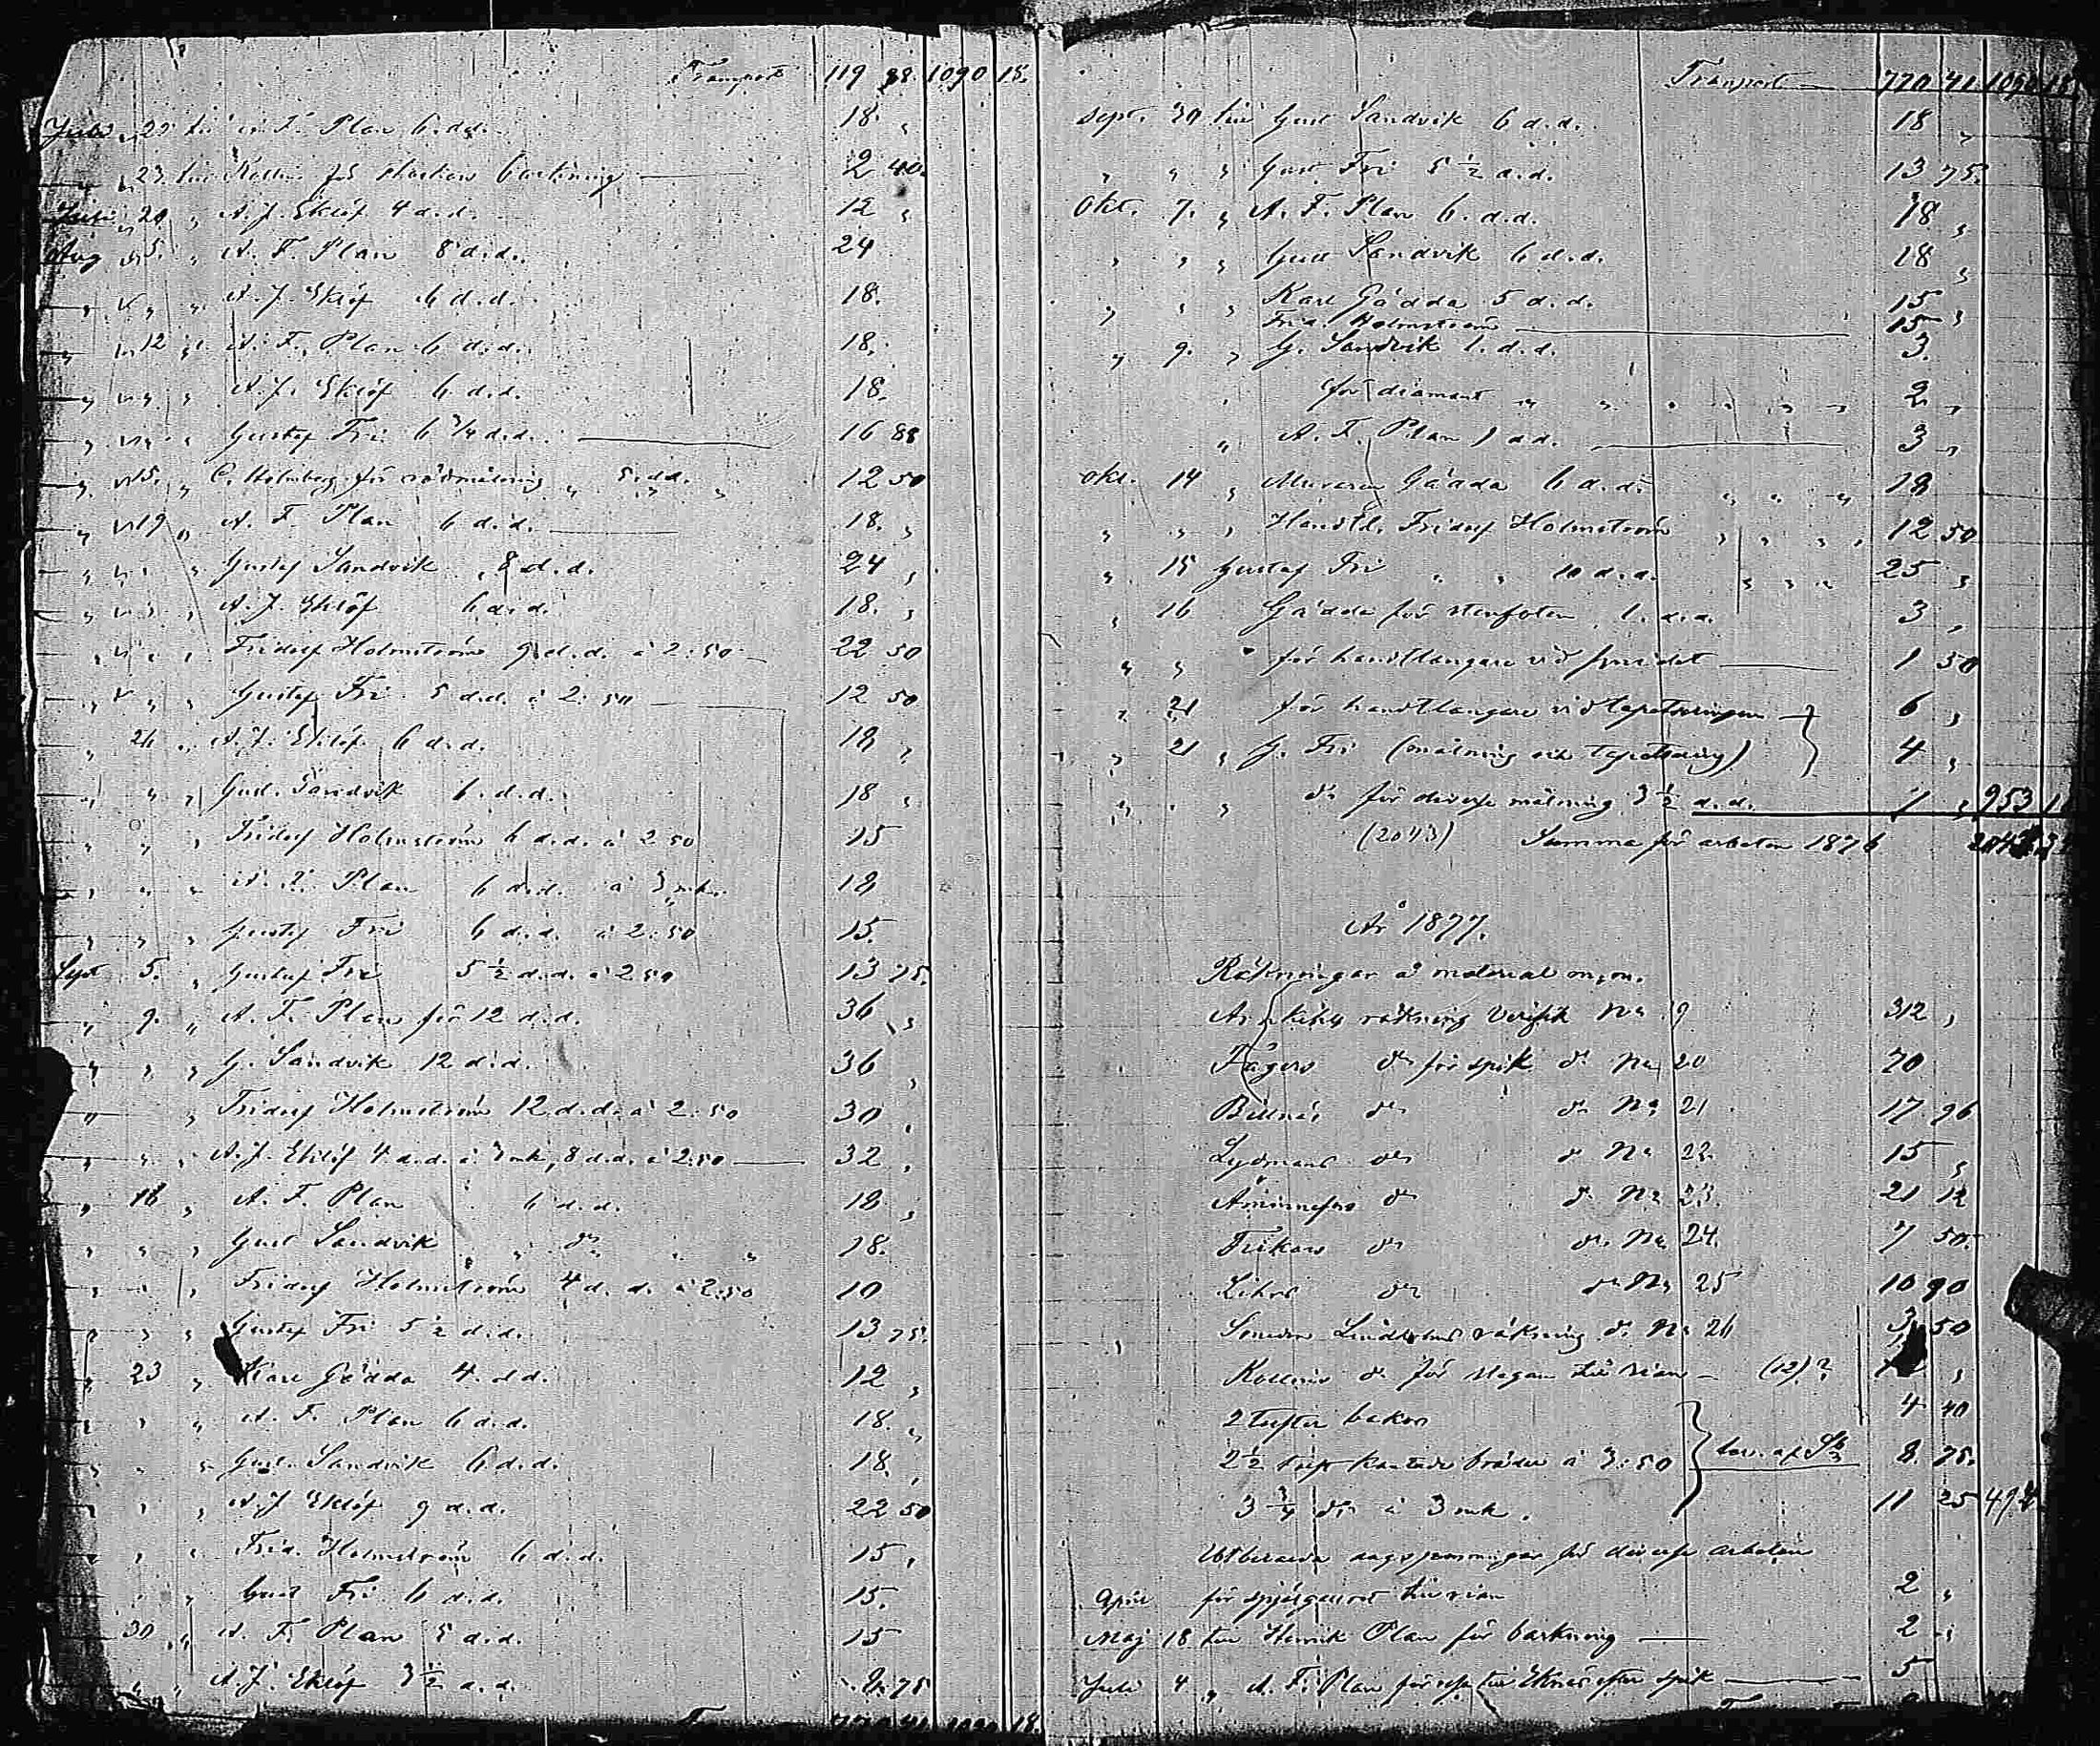 Transport 119 88. 1090 18.
Juli 22 till A. F. Plan 6. d.d. 18. „
„ 23 till för barkning 2 40.
Juli 29 „ A. J. Eklöf 4 d.d. 12 „
Aug 5. „ A. F. Plan 8 d.d. 24
„ „ „ A. J. Eklöf 6 d.d. 18.
„ 12 „ A. F. Plan 6 d.d. 18.
„ „ „ A. J. Eklöf 6. d.d. 18.
„ „ „ Gustaf Fri 6 3/4 d.d. 16 88
„ 15. „ C. Holmberg för rödmålning „ 5. dd. 12 50
„ 19 „ A. F. Plan 6 d.d. 18. „
„ „ „ Gustaf Sandvik 8 d.d. 24 „
„ „ „ A. J. Eklöf 6 d.d. 18. „
„ „ „ Fridolf Holmström 9 d.d. à 2:50 22 50
„ „ „ Gustaf Fri 5 d.d. à 2:50 12 50
„ 26 „ A. J. Eklöf 6 d.d. 18 „
„ „ „ Gust. Sandvik 6. d.d. 18 „
„ „ „ Fridolf Holmström 6 d.d. à 2 50 15
„ „ „ A. F. Plan 6 d.d. à 3 mk. 18
„ „ „ Gustaf Fri 6 d.d. à 2:50 15.
Sept 5. „ Gustaf Fri 5 1/2 d.d. à 2 50 13 75.
„ 9. „ A. F. Plan för 12 d.d. 36 „
„ „ „ G. Sandvik 12 d.d. 36 „
„ „ Fridolf Holmström 12 d.d. à 2:50 30 „
„ „ „ A. J. Eklöf 4 d.d. à 3 mk, 8 d.d. à 2:50 32 „
„ 16 „ A. F. Plan 6 d.d. 18 „
„ „ „ Gust Sandvik „ „ d:o „ „ 18.
„ „ „ Fridolf Holmström 4 d.d. à 2:50 10
„ „ „ Gustaf Fri 5 1/2 d.d. 13 75.
„ 23 „ Karl Gädda 4. d.d. 12 „
„ „ „ A. F. Plan 6 d.d. 18. „
„ „ „ Gust. Sandvik 6 d.d. 18. „
„ „ „ A. J. Eklöf 9 d.d. 22 50
„ „ „ Frid. Holmström 6 d.d. 15 „
„ „ Gust Fri 6 d.d. 15.
30 „ A. F. Plan 5 d.d. 15
„ „ A. J. Eklöf 3 1/2 d.d. 8 75
Transport 770 41 1090 18
Sept. 30 till Gust Sandvik 6 d.d. 18 „
„ „ „ Gust Fri 5 1/2 d.d. 13 75.
Okt. 7. „ A. F. Plan 6. d.d. 18 „
„ „ „ Gust Sandvik 6 d.d. 18 „
„ „ „ Karl Gädda 5 d.d. 15 „
Frid. Holmström 15
„ 9. „ G. Sandvik 1. d.d. 3.
„ för diamant „ „ „ „ „ „ 2 „
„ A. F. Plan 1 d.d. 3 „
Okt. 14 „ Muraren Gädda 6 d.d. „ „ „ 18
„ „ „ Handtl. Fridolf Holmström „ „ „ „ 12 50
„ 15 Gustaf Fri „ „ 10 d.d. „ „ „ 25 „
„ 16 Gädda för stenfoten 1. d.d. 3 „
„ „ „ för handtlangare vid 1 50
„ 21 för handtlangare vid tapetseringen 6 „
„ 21 „ G. Fri (målning och tapetsering) 4 „
„ „ „ d:o för diverse målning 3 1/2 d.d. 953
(2043) Summa för arbeten 1876
År 1877.
Räkningar å material m.m.
räkning Verifik No 19 312 „
d:o för spik d:o No 20 70
Billnäs d:o d:o No 21 17 96
Lydmans d:o d:o No 22. 15 „
Åminnefors d:o d:o No 23. 21 12
d:o d:o No 24. 7 50.
d:o d:o No 25 10 90
Lindholms räkning d:o No 26 3 50
d:o för till rian (12)?
2 tolfter bakar 4 40
2 1/2 tolft kantade bräder à 3:50 lev. af 8. 75.
3 3/4 d:o à 3 mk. 11 25
Utbetalda dagspenningar för diverse arbeten
April för till rian 2 „
Maj 18 till Henrik Plan för barkning 2 „
Juli 4 „ A. F. Plan för till Eknäs efter spik 5